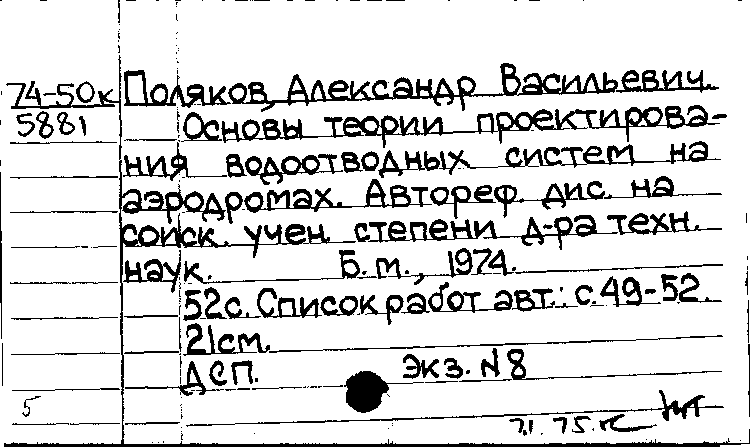 74-50к Поляков, Александр Васильевич.
5881 Основы теории проектирова-
ния водоотводных систем на
аэродромах. Автореф. дис. на
соиск. учен. степени д-ра техн.
наук. Б.м., 1974.
52с. Список работ авт.: с.49-52.
21см.
ДСП. Экз. N8
5